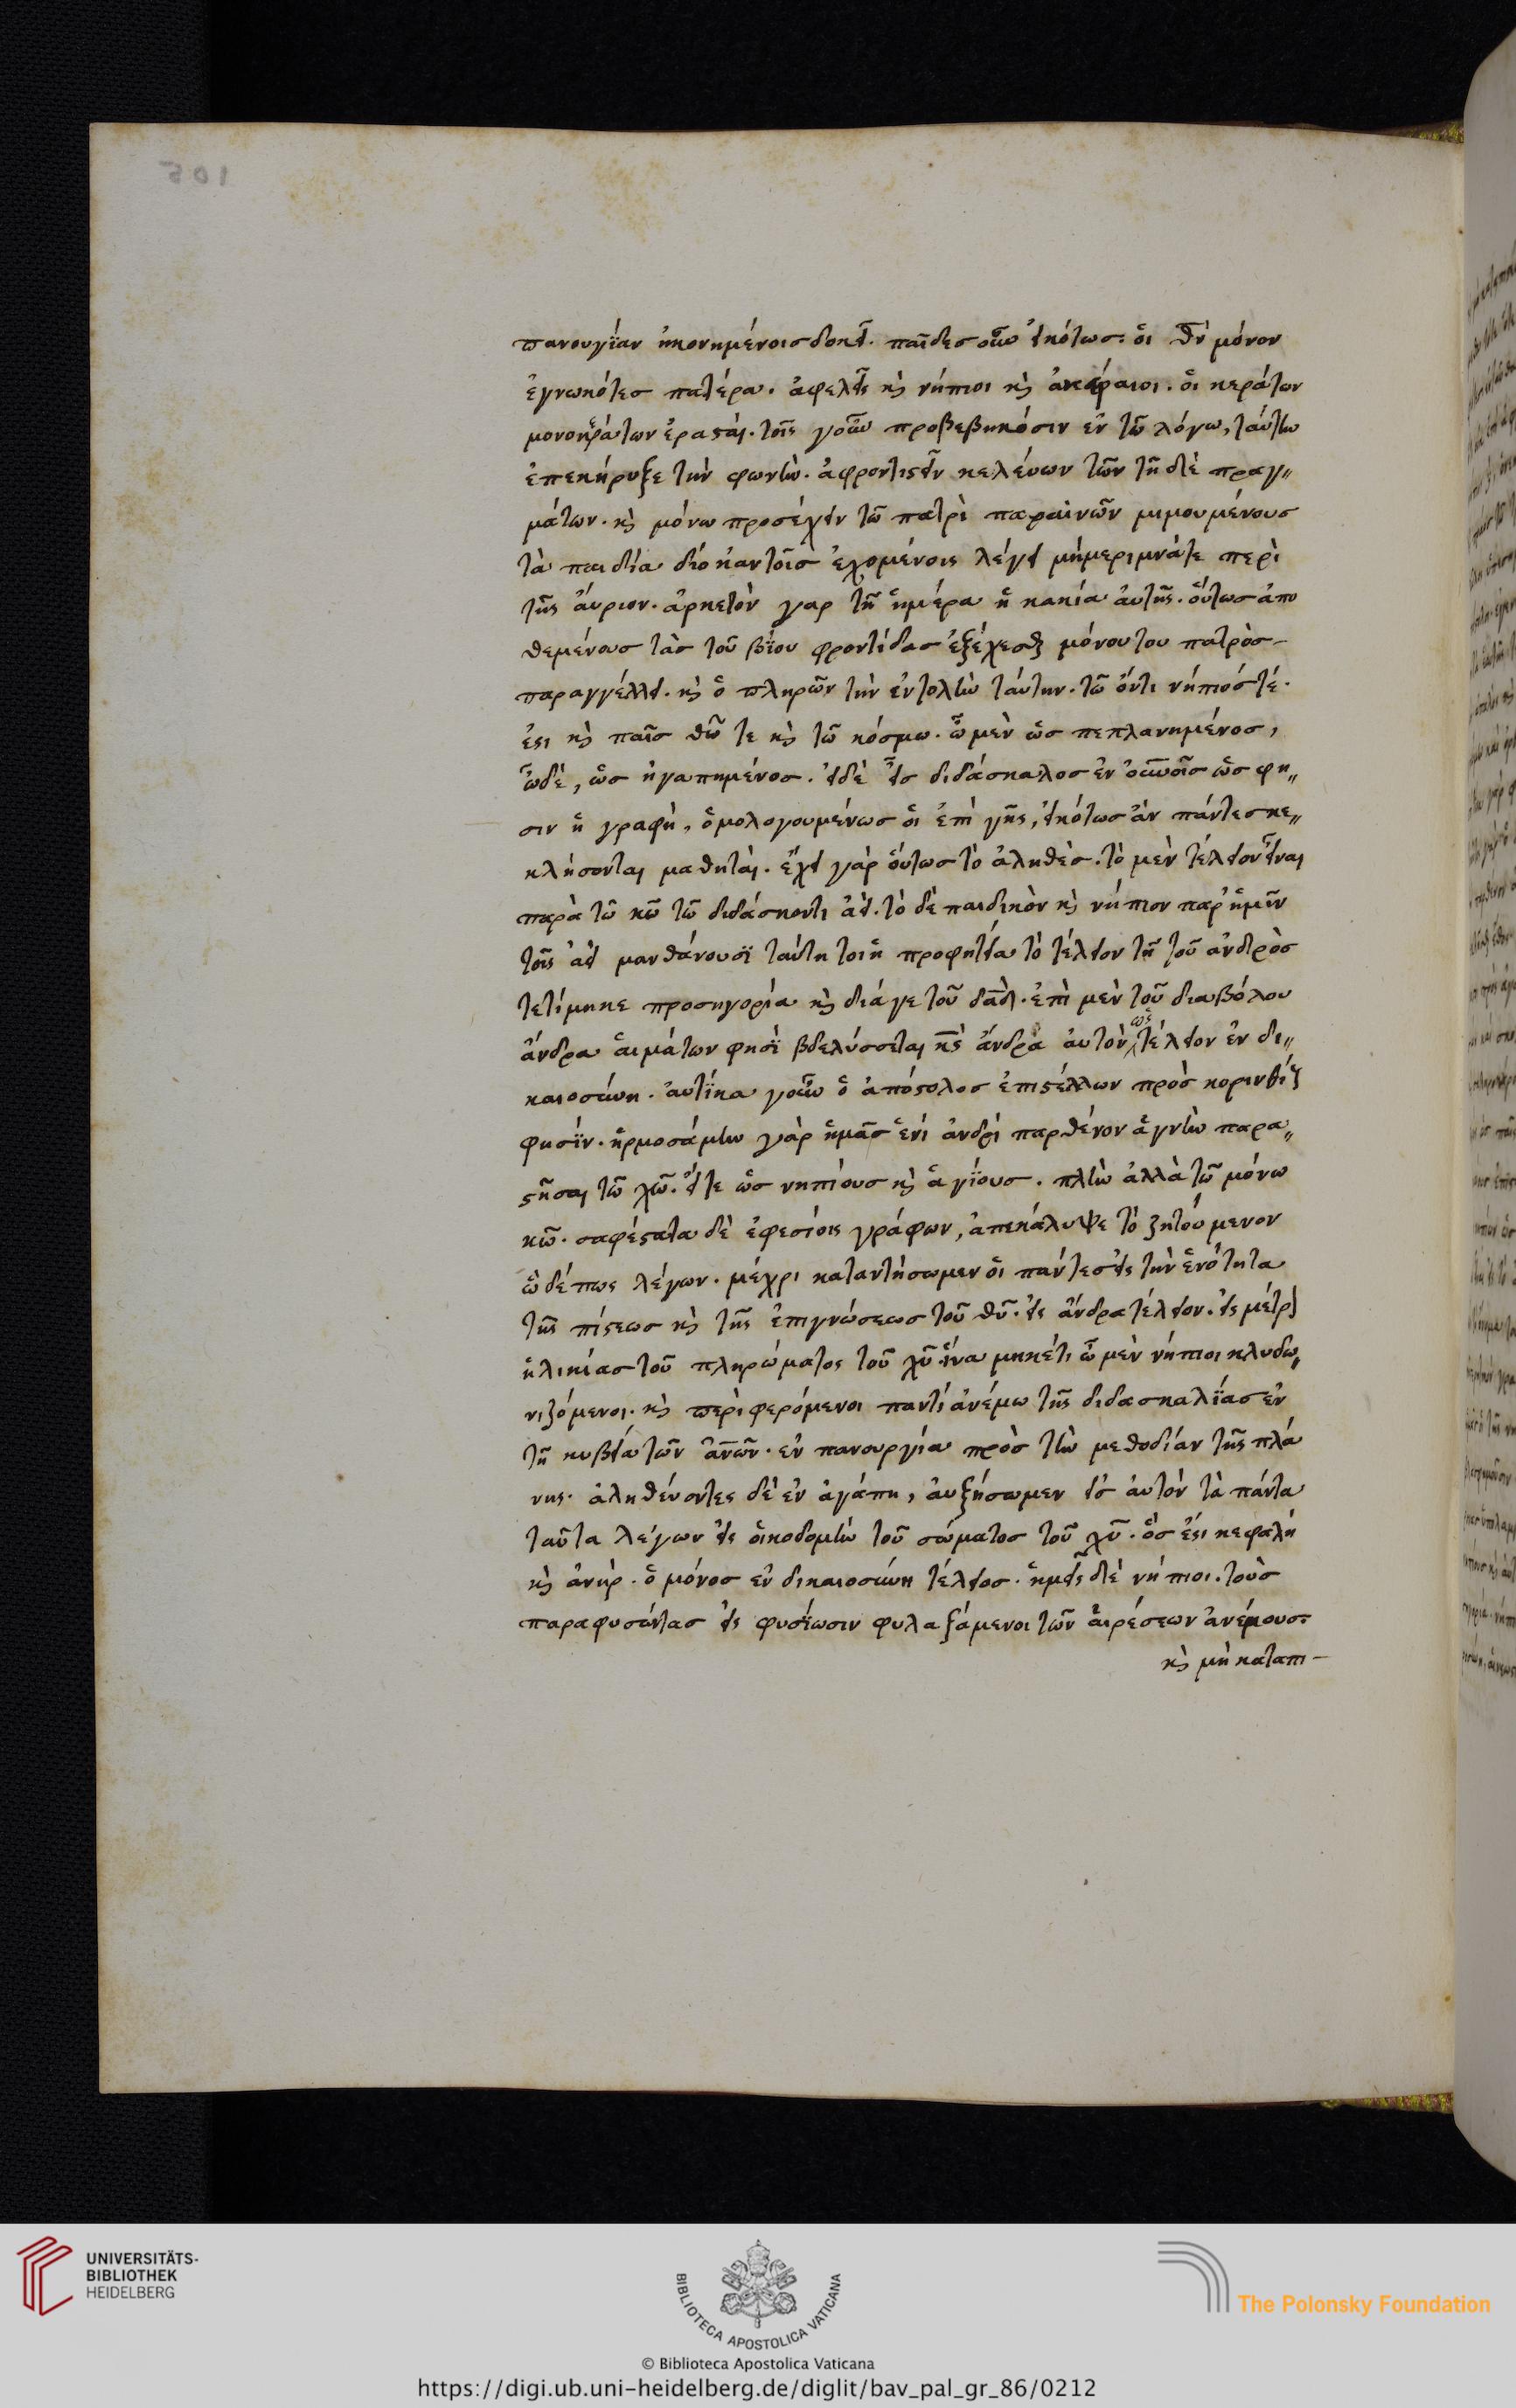 πανουγίαν ἠκονημένοις δοκεῖ. παῖδες οὖν εἰκότως: οἱ θν̄ μόνον
ἐγνωκότες πατέρα. ἀφελεῖς κ̀ νήπιοι κ̀ ἀκέραιοι. οἱ κεράτων
μονοκεράτων ἐρασταί. τοῖς γοῦν προβεβηκόσιν ἐν τῶ λόγω, ταύτην
ἐπεκήρυξε τὴν φωνὴν. ἀφροντιστεῖν κελέυων τῶν τῆ δὲ πραγ〃
μάτων. κ̀ μόνω προσέχειν τῶ πατρὶ παραινῶν μιμουμένους
τὰ παιδία διὸ κἀν τοῖς ἐχομένοις λέγει μὴ μεριμνᾶτε περὶ
τῆς ἄυριον. ἀρκετὸν γαρ τῆ ἡμέρα ἡ κακία ἀυτῆς. ὅυτως ἀπο
θεμένους τὰς τοῦ βίου φροντίδας ἐξέχεσθαι μόνου του πατρὸς–
παραγγέλλει. κ̀ ὁ πληρῶν τὴν ἐντολὴν ταύτην. τῶ ὄντι νήπιός τέ.
ἐστι κ̀ παῖς θῶ̄ τε κ̀ τῶ κόσμω. ὧ μὲν ὡς πεπλανημένος,
ὧ δὲ, ὡς ἠγαπημένος. εἰ δὲ εἷς διδάσκαλος ἐν οὐνοῖς ὡς φη〃
σιν ἡ γραφὴ, ὁμολογουμένως οἱ ἐπὶ γῆς, εἰκότως ἀν πάντες κε〃
κλήσονται μαθηταί. ἔχει γὰρ ὅυτως τὸ ἀληθὲς. τὸ μὲν τέλειον εἶναι
παρὰ τῶ κῶ̄ τῶ διδάσκοντι ἀεὶ. τὸ δὲ παιδικὸν κ̀ νήπιον παρ' ἡμῖν
τοῖς ἀεὶ μανθάνουσϊ ταύτη τοι ἡ προφητεία τὸ τέλειον τῆ τοῦ ἀνδρὸς
τετίμηκε προσηγορία κ̀ διά γε τοῦ δᾱδ. ἐπὶ μὲν τοῦ διαβόλου
ἄνδρα ἁιμάτων φησὶ βδελύσσεται κ̄ς ἄνδρα ἀυτὸν ὡς τέλειον ἐν δι〃
καιοσύνη. ἀυτίκα γοῦν ὁ ἀπόστολος ἐπιστέλλων πρὸς κορινθίους
φησίν. ἡρμοσάμην γὰρ ἡμᾶς ἑνὶ ἀνδρὶ παρθένον ἁγνὴν παρα〃
στῆσαι τῶ χῶ̄. εἴτε ὡς νηπίους κ̀ ἁγίους. πλὴν ἀλλὰ τῶ μόνω
κῶ̄. σαφέστατα δὲ ἐφεσίοις γράφων, ἀπεκάλυψε τὸ ζητούμενον
ὧδέ πως λέγων. μέχρι καταντήσωμεν οἱ πάντες εἰς τὴν ἑνότητα
τῆς πίστεως κ̀ τῆς ἐπιγνώσεως τοῦ θῡ. εἰς ἄνδρα τέλειον. εἰς μέτρον
ἡλικίας τοῦ πληρώματος τοῦ χῡ. ἵνα μηκέτι ὦμεν νήπιοι κλυδω〃
νιζόμενοι. κ̀ περὶ φερόμενοι παντὶ ἀνέμω τῆς διδασκαλίας ἐν
τῆ κυβεία τῶν ἀνῶ̄ν. ἐν πανουργία πρὸς τὴν μεθοδίαν τῆς πλά
νης. ἀληθέυοντες δὲ ἐν ἀγάπη, ἀυξήσωμεν εἰς ἀυτὸν τὰ πάντα
ταῦτα λέγων εἰς ὀικοδομὴν τοῦ σώματος τοῦ χῡ. ὅς ἐστι κεφαλὴ
κ̀ ἀνὴρ. ὁ μόνος ἐν δικαιοσύνη τέλειος. ἡμεῖς δὲ νήπιοι. τοὺς
παραφυσῶντας εἰς φυσίωσιν φυλαξάμενοι τῶν ἁιρέσεων ἀνέμους:
κ̀ μὴ καταπι–
301
UNIVERSITÄTS-
BIBLIOTHEK
HEIDELBERG
BIBLIOTECA APOSTOLICA VATICANA
The Polonsky Foundation
© Biblioteca Apostolica Vaticana
https://digi.ub.uni-heidelberg.de/diglit/bav_pal_gr_86/0212